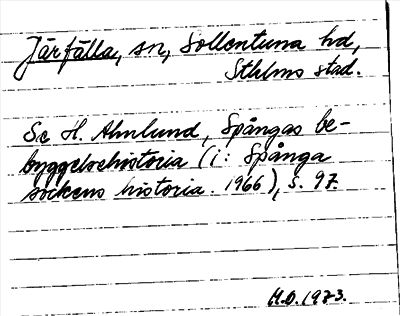 Järfälla, sn, Sollentuna hd,
Sthlms stad.
Se H. Ahnlund, Spångas be-
byggelsehistoria (i: Spånga
sockens historia. 1966), s. 97.
M.O. 1973.